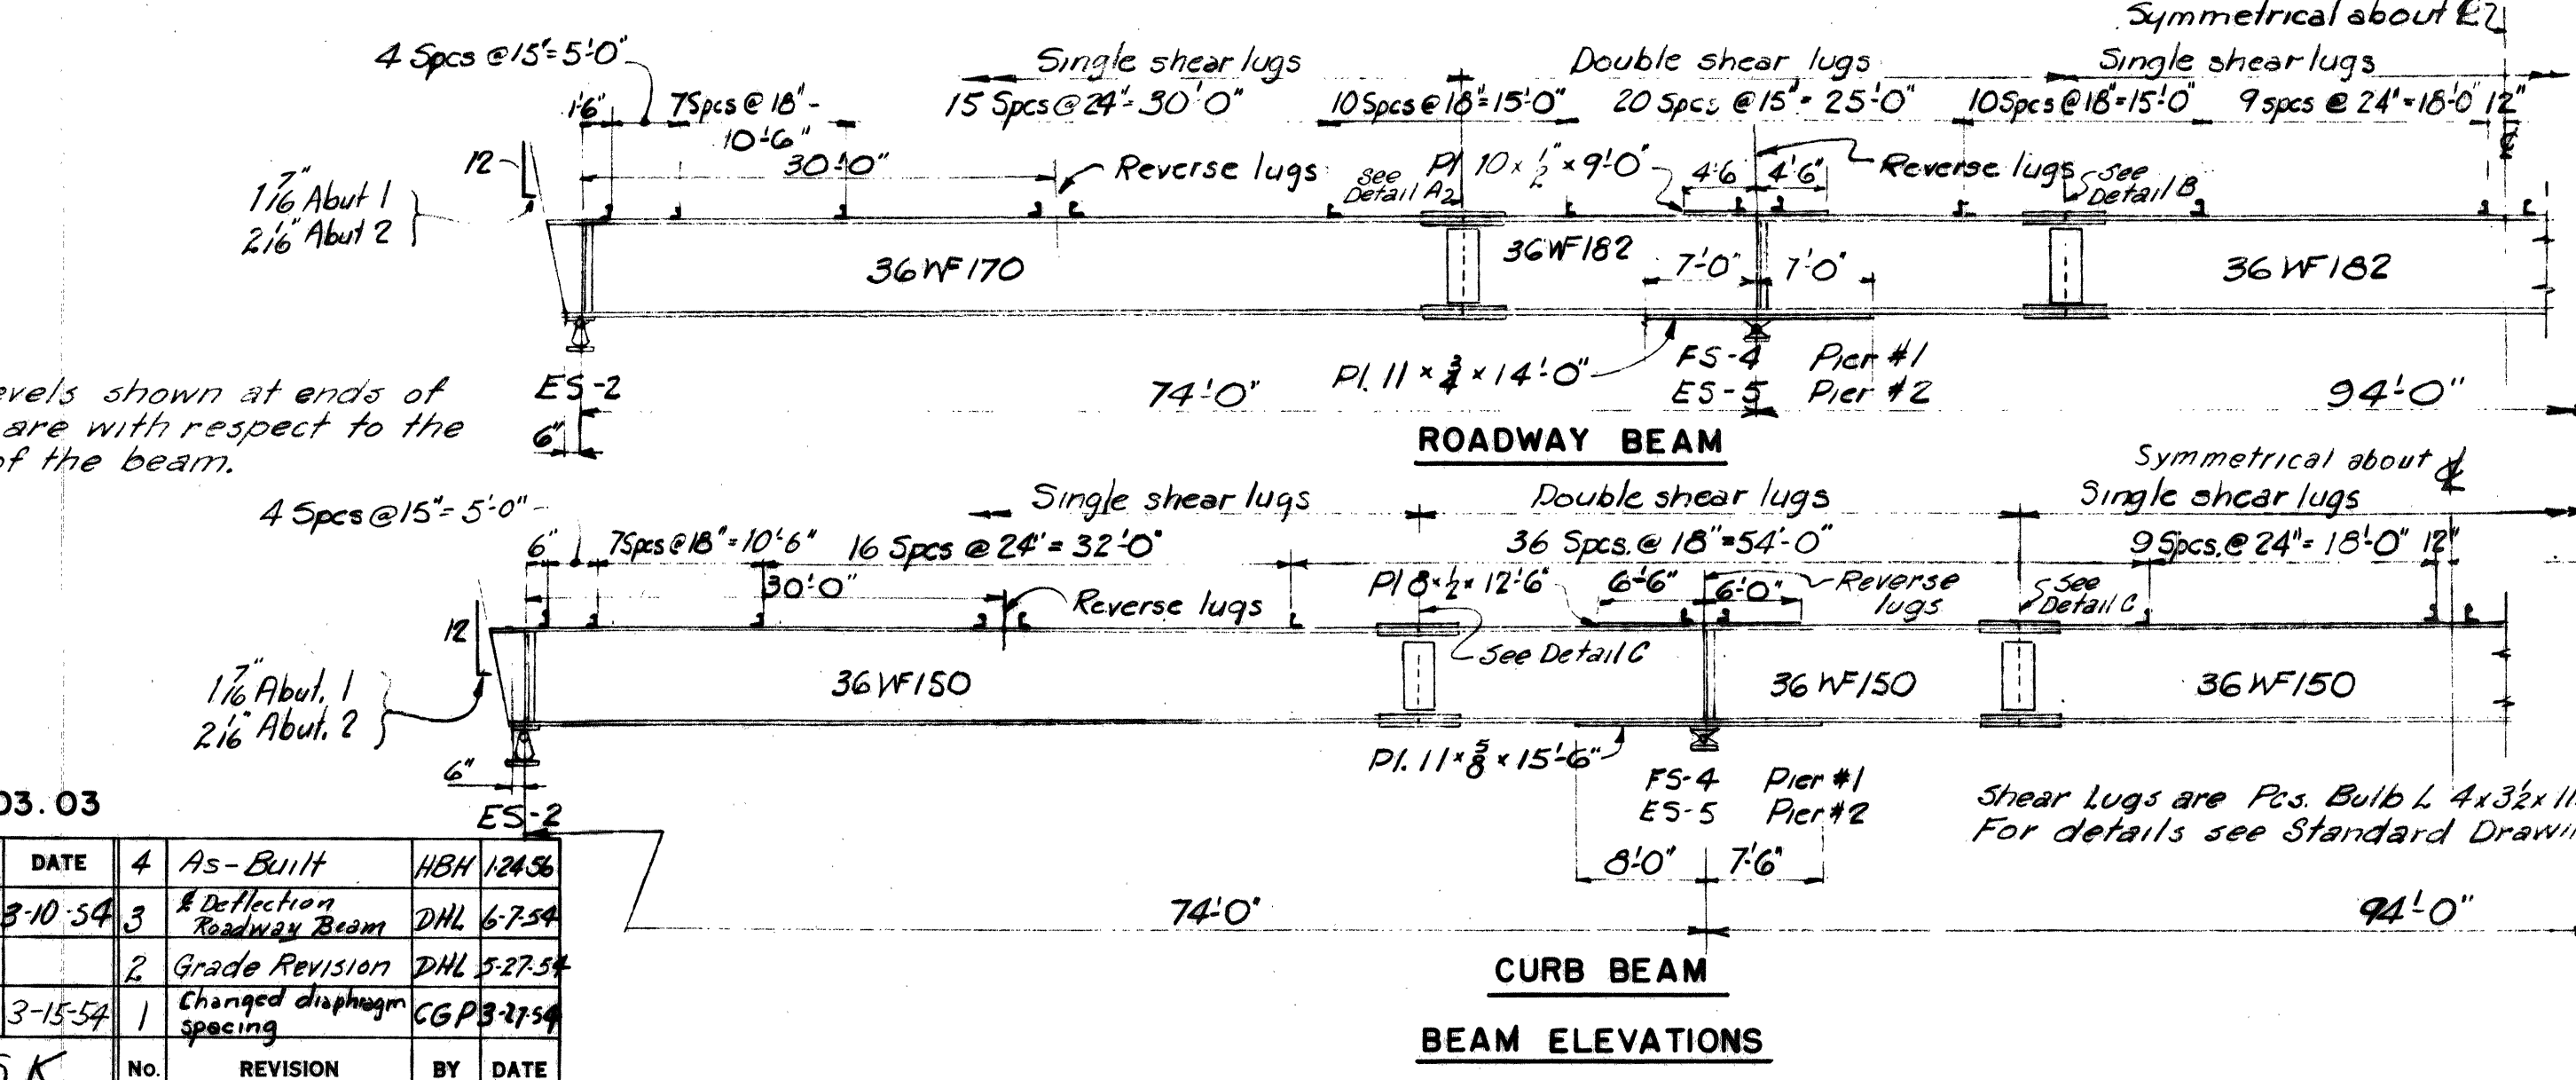 Symmetrical about ℄
4 Spcs @ 15"=5'-0"
Single shear lugs
Double shear lugs
Single shear lugs
1'6"
7 Spcs @ 18" =
10'-6"
15 Spcs @ 24"= 30'-0"
10 Spcs @ 18"=15'-0"
20 Spcs @ 15"= 25'-0"
10 Spcs @ 18"=15'-0"
9 spcs @ 24"=18'-0"
12"
℄
12
30'-0"
Reverse lugs
See
Detail A2
Pl 10 x 1/2" x 9'-0"
4'-6
4'-6"
Reverse lugs
See
Detail B
1 7/16" Abut 1
2 1/16" Abut 2
36 WF 170
36 WF 182
7'-0"
7'-0"
36 WF 182
ES-2
74'-0"
Pl. 11 x 3/4 x 14'-0"
FS-4 Pier #1
ES-5 Pier #2
94'-0"
6"
evels shown at ends of
are with respect to the
of the beam.
ROADWAY BEAM
Symmetrical about ℄
4 Spcs @ 15"= 5'-0"
Single shear lugs
Double shear lugs
Single shear lugs
6"
7 Spcs @ 18"= 10'-6"
16 Spcs @ 24"= 32'-0"
36 Spcs. @ 18"=54'-0"
9 Spcs. @ 24"= 18'-0"
12"
30'-0"
Reverse lugs
Pl 8 x 1/2 x 12'-6"
6'-6"
6'-0"
Reverse
lugs
See
Detail C
12
See Detail C
1 7/16" Abut. 1
2 1/16" Abut. 2
36 WF 150
36 WF 150
36 WF 150
6"
ES-2
Pl. 11 x 5/8 x 15'-6"
FS-4 Pier #1
ES-5 Pier #2
Shear Lugs are Pcs. Bulb L 4 x 3 1/2 x 11
For details see Standard Drawi
8'-0"
7'-6"
74'-0"
94'-0"
CURB BEAM
BEAM ELEVATIONS
03.03
DATE 4 As-Built HBH 1-24-56
3-10-54 3 ℄ Deflection
Roadway Beam DHL 6-7-54
2 Grade Revision DHL 5-27-54
3-15-54 1 Changed diaphragm
spacing CGP 3-27-54
No. REVISION BY DATE